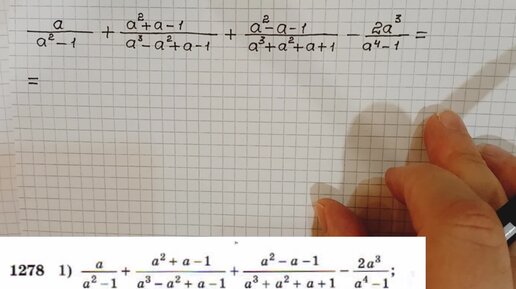 a/(a²-1) + (a²+a-1)/(a³-a²+a-1) + (a²-a-1)/(a³+a²+a+1) - 2a³/(a⁴-1) =
=
1278 1) a/(a²-1) + (a²+a-1)/(a³-a²+a-1) + (a²-a-1)/(a³+a²+a+1) - 2a³/(a⁴-1);